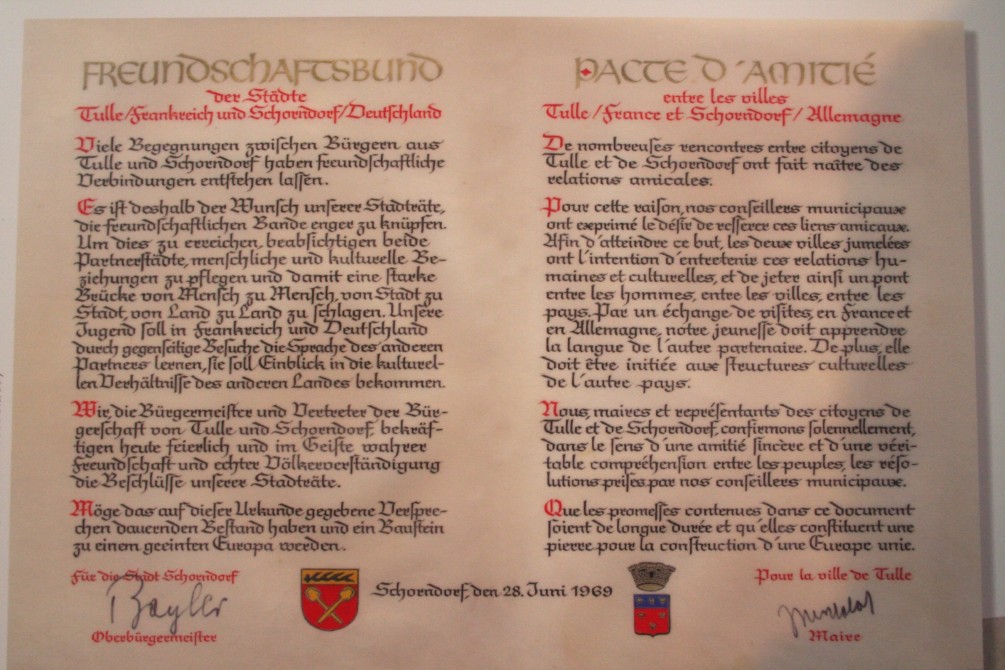 FREUNDSCHAFTSBUND
der Städte
Tulle/Frankreich und Schorndorf/Deutschland
Viele Begegnungen zwischen Bürgern aus
Tulle und Schorndorf haben freundschaftliche
Verbindungen entstehen lassen.
Es ist deshalb der Wunsch unserer Stadträte,
die freundschaftlichen Bande enger zu knüpfen.
Um dies zu erreichen, beabsichtigen beide
Partnerstädte, menschliche und kulturelle Be-
ziehungen zu pflegen und damit eine starke
Brücke von Mensch zu Mensch, von Stadt zu
Stadt, von Land zu Land zu schlagen. Unsere
Jugend soll in Frankreich und Deutschland
durch gegenseitige Besuche die Sprache des anderen
Partners lernen, sie soll Einblick in die kulturel-
len Verhältnisse des anderen Landes bekommen.
Wir, die Bürgermeister und Vertreter der Bür-
gerschaft von Tulle und Schorndorf, bekräf-
tigen heute feierlich und im Geiste wahrer
Freundschaft und echter Völkerverständigung
die Beschlüsse unserer Stadträte.
Möge das auf dieser Urkunde gegebene Verspre-
chen dauernden Bestand haben und ein Baustein
zu einem geeinten Europa werden.
Für die Stadt Schorndorf
Bayler
Oberbürgermeister
Schorndorf, den 28. Juni 1969
PACTE D'AMITIÉ
entre les villes
Tulle / France et Schorndorf / Allemagne
De nombreuses rencontres entre citoyens de
Tulle et de Schorndorf ont fait naître des
relations amicales.
Pour cette raison, nos conseillers municipaux
ont exprimé le désir de resserer ces liens amicaux.
Afin d'atteindre ce but, les deux villes jumelées
ont l'intention d'entretenir ces relations hu-
maines et culturelles, et de jeter ainsi un pont
entre les hommes, entre les villes, entre les
pays. Par un échange de visites, en France et
en Allemagne, notre jeunesse doit apprendre
la langue de l'autre partenaire. De plus, elle
doit être initiée aux structures culturelles
de l'autre pays.
Nous, maires et représentants des citoyens de
Tulle et de Schorndorf, confirmons solennellement,
dans le sens d'une amitié sincère et d'une véri-
table compréhension entre les peuples, les réso-
lutions prises par nos conseillers municipaux.
Que les promesses contenues dans ce document
soient de longue durée et qu'elles constituent une
pierre pour la construction d'une Europe unie.
Pour la ville de Tulle
Maire